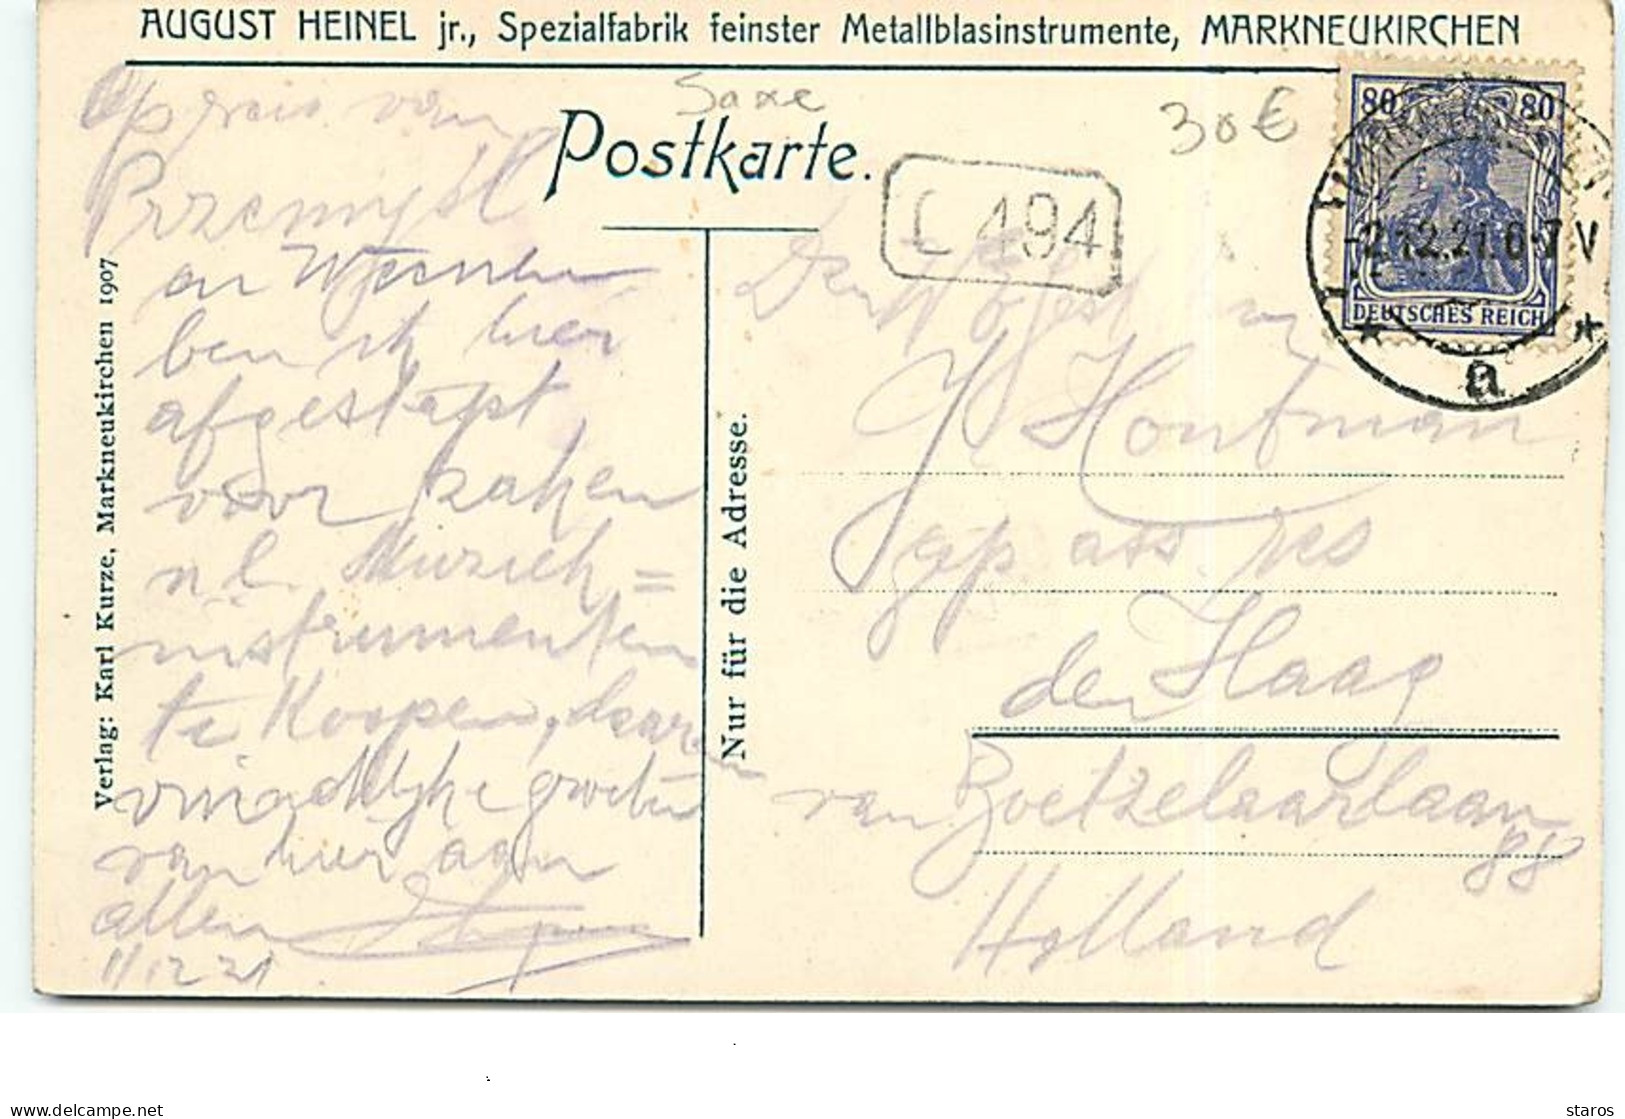 AUGUST HEINEL jr., Spezialfabrik feinster Metallblasinstrumente, MARKNEUKIRCHEN
Saxe
30 €
Postkarte.
C 494
80 80
DEUTSCHES REICH
-2.12.21. 6-7 V
* a *
Verlag: Karl Kurze, Markneukirchen 1907
Nur für die Adresse.
Op reis van
Przemysl
en
ben ik hier
afgestapt
voor zaken
n.l. Muziek=
instrumenten
te Koopen, daar
vriendelijke groeten
van hier aan
allen
1/12 21
Houtman
den Haag
van Boetzelaarlaan
88
Holland
delcampe.net
staros